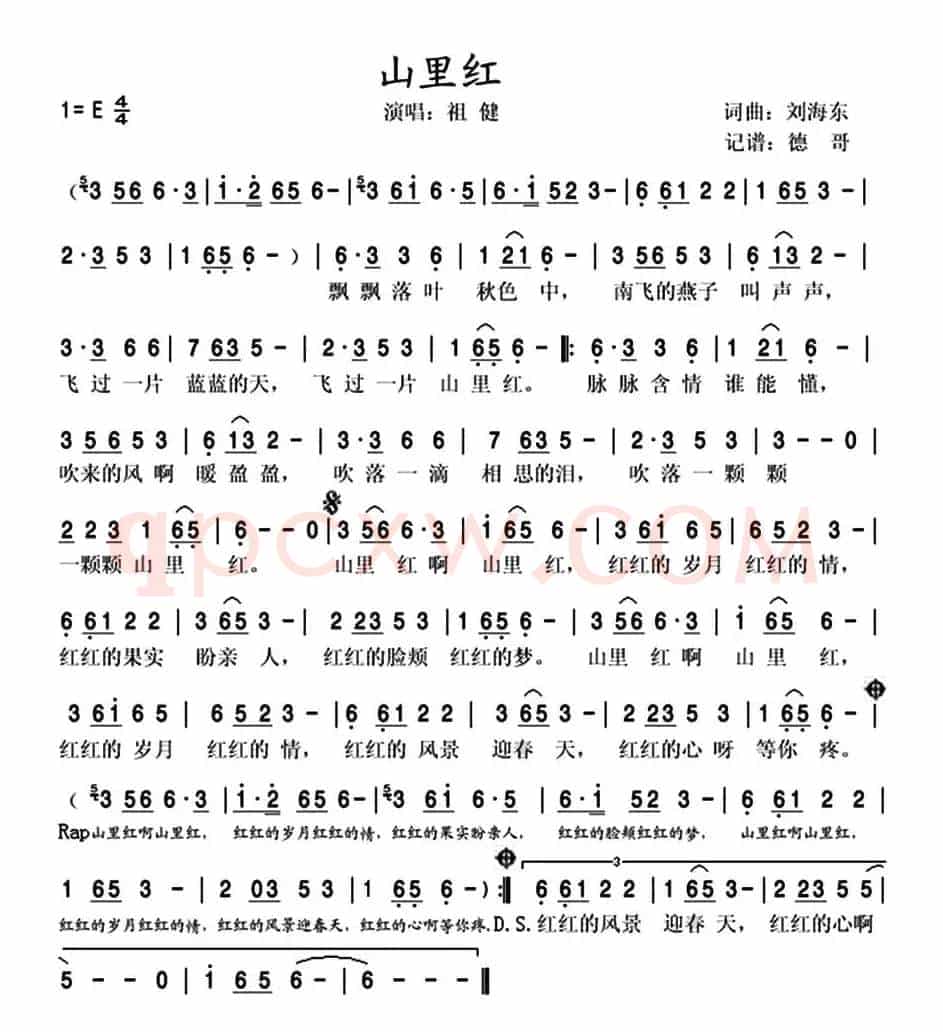 山里红
1=E 4/4 演唱：祖 健 词曲：刘海东
记谱：德 哥
(5 3 56 6·3|i·2 65 6-|5 3 6i 6·5|6·i 52 3-|6 61 2 2|1 65 3-|
2·3 5 3|1 65 6-)|6·3 3 6|1 21 6-|3 56 5 3|6 13 2-|
飘飘落叶 秋色 中， 南飞的燕子 叫声声，
3·3 6 6|7 63 5-|2·3 5 3|1 65 6-‖:6·3 3 6|1 21 6-|
飞过一片 蓝蓝的天， 飞过一片 山里红。 脉脉含情 谁能 懂，
3 5 6 5 3|6 13 2-|3·3 6 6|7 63 5-|2·3 5 3|3--0|
吹来的风啊 暖盈盈， 吹落一滴 相思的泪， 吹落一颗 颗
2 2 3 1 65|6--0|3 56 6·3|i 65 6-|3 6i 6 5|6 5 2 3-|
一颗颗山里 红。 山里红啊 山里 红， 红红的岁月 红红的情，
6 61 2 2|3 65 3-|2 23 5 3|1 65 6-|3 56 6·3|i 65 6-|
红红的果实 盼亲 人， 红红的脸颊 红红的梦。 山里 红啊 山里 红，
3 6i 6 5|6 5 2 3-|6 61 2 2|3 65 3-|2 23 5 3|1 65 6-|
红红的 岁月 红红的 情， 红红的 风景 迎春 天， 红红的心呀 等你 疼。
(5 3 56 6·3|i·2 65 6-|5 3 6i 6·5|6·i 52 3-|6 61 2 2|
Rap山里红啊山里红， 红红的岁月红红的情，红红的果实盼亲人， 红红的脸颊红红的梦， 山里红啊山里红，
1 65 3-|2 03 5 3|1 65 6-):‖ 3 6 61 2 2|1 65 3-|2 23 5 5|
红红的岁月红红的情，红红的风景迎春天，红红的心啊等你疼.D.S.红红的风景 迎春 天， 红红的心啊
5--0|i 65 6-|6---‖
qpcxw.com